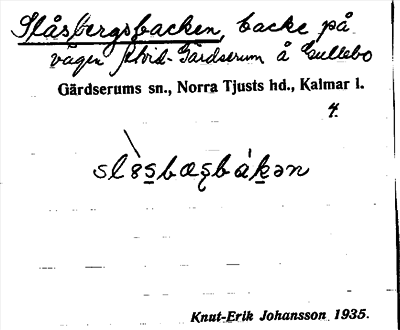 Slåsbergsbacken, backe på
vägen Alvid-Gärdserum å Gullebo
Gärdserums sn., Norra Tjusts hd., Kalmar l.
4.
Knut-Erik Johansson 1935.